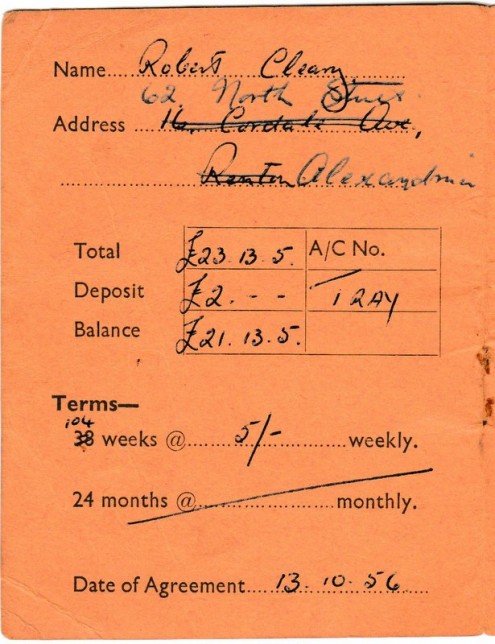 Name Robert Cleary
62, North Street
Address 16, Cordale Ave,
Renton Alexandria
Total £23.13.5. A/C No.
Deposit £2. - -
Balance £21.13.5.
Terms—
104
38 weeks @ 5/- weekly.
24 months @ monthly.
Date of Agreement 13.10.56